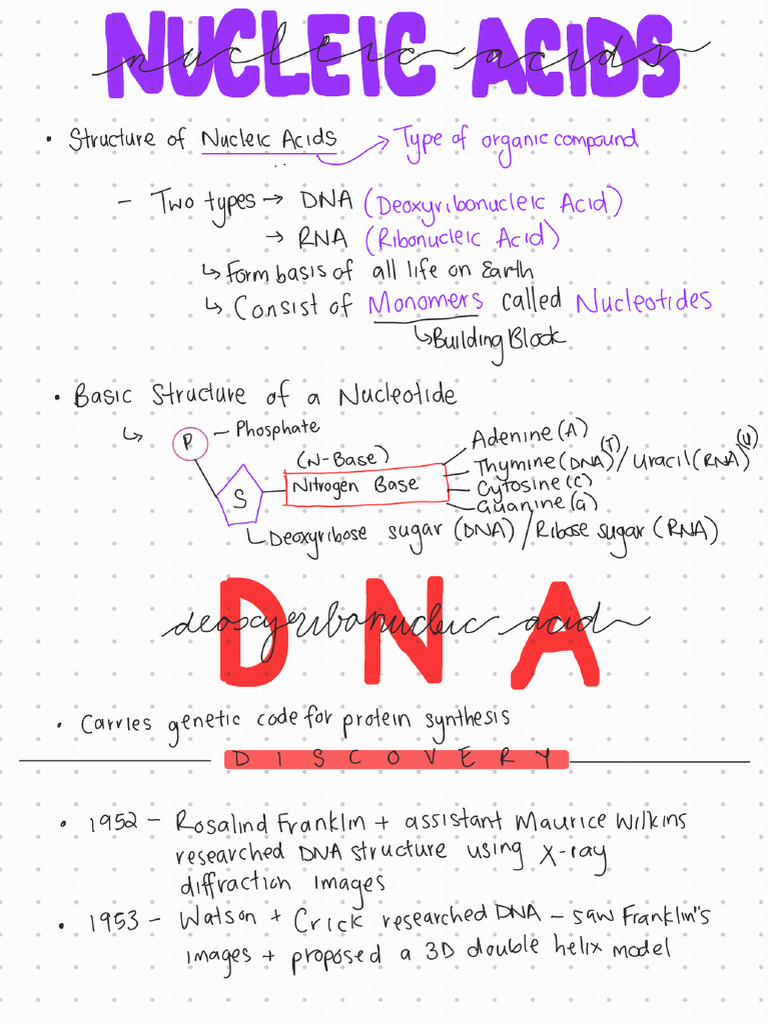 NUCLEIC ACIDS
nucleic acids
• Structure of Nucleic Acids → Type of organic compound
- Two types → DNA (Deoxyribonucleic Acid)
→ RNA (Ribonucleic Acid)
↳ Form basis of all life on Earth
↳ Consist of Monomers called Nucleotides
↳ Building Block
• Basic Structure of a Nucleotide
↳ P - Phosphate
Adenine (A)
(N-Base)
Thymine (DNA) (T) / Uracil (RNA) (U)
S Nitrogen Base
Cytosine (C)
Guanine (G)
Deoxyribose sugar (DNA) / Ribose sugar (RNA)
DNA
deoxyribonucleic acid
• Carries genetic code for protein synthesis
DISCOVERY
• 1952 - Rosalind Franklin + assistant Maurice Wilkins
researched DNA structure using X-ray
diffraction images
• 1953 - Watson + Crick researched DNA - saw Franklin's
images + proposed a 3D double helix model